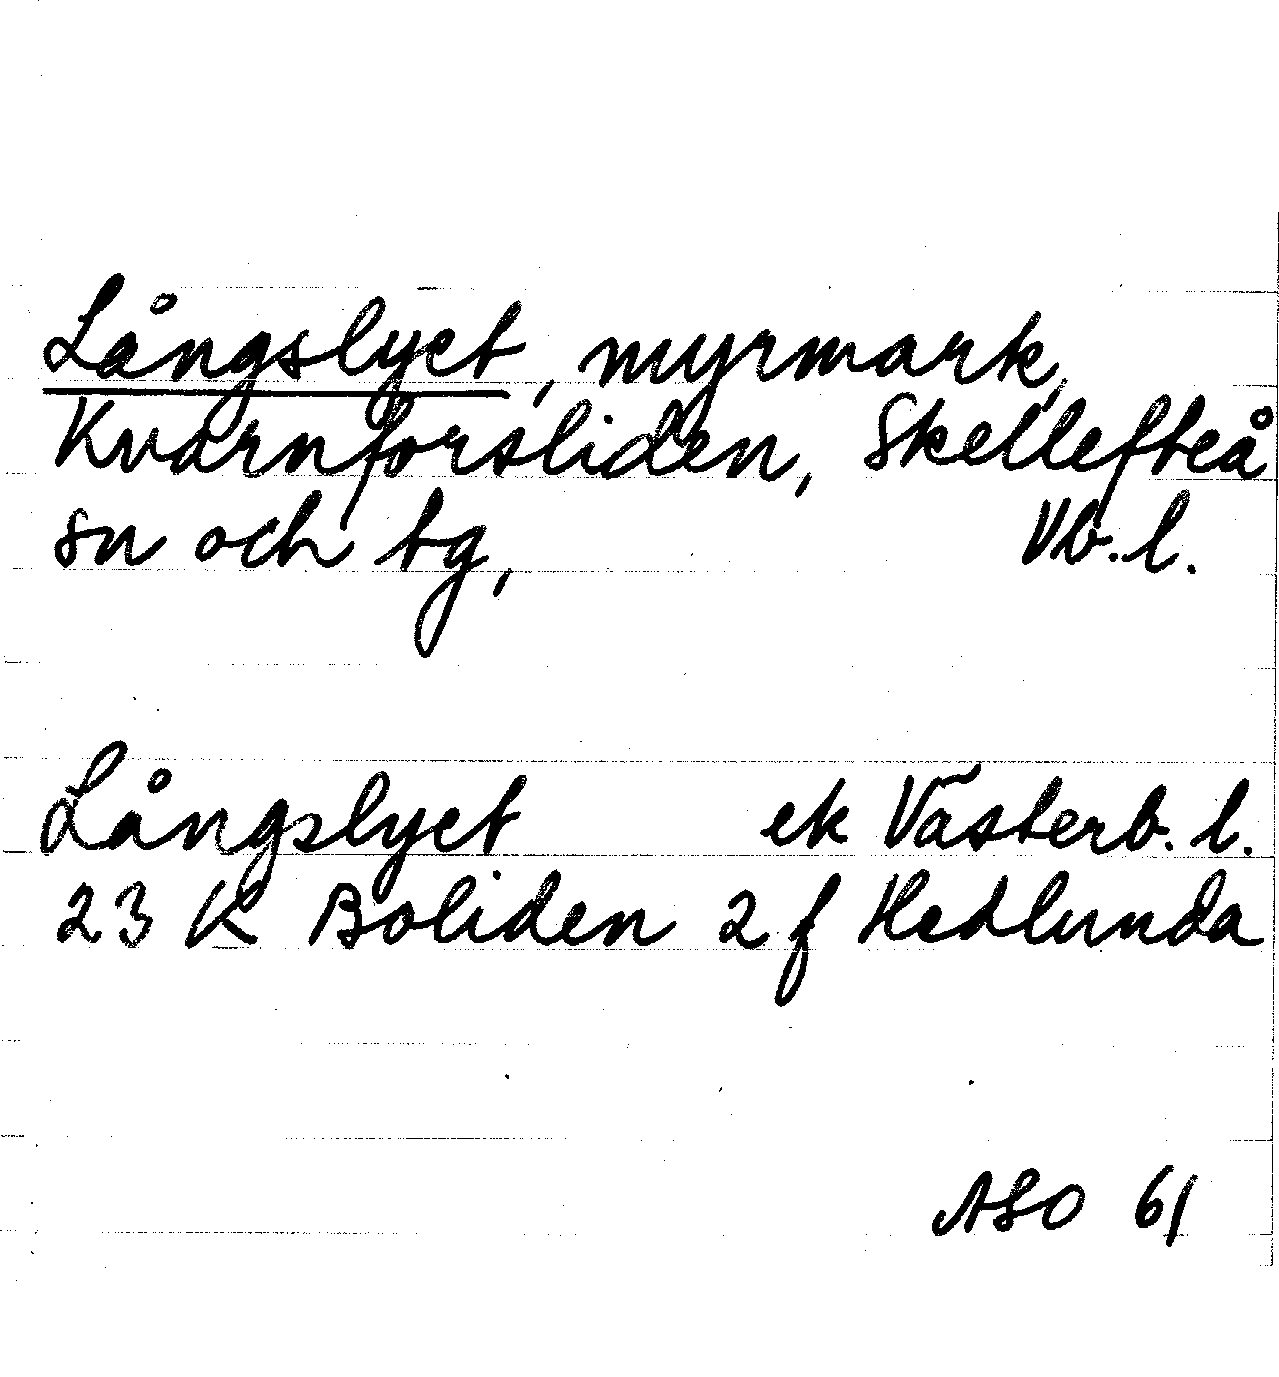 Långslyet, myrmark,
Kvarnforsliden, Skellefteå
sn och tg, Vb. l.
Långslyet ek Västerb. l.
23 K Boliden 2 f Hedlunda
ASO 61